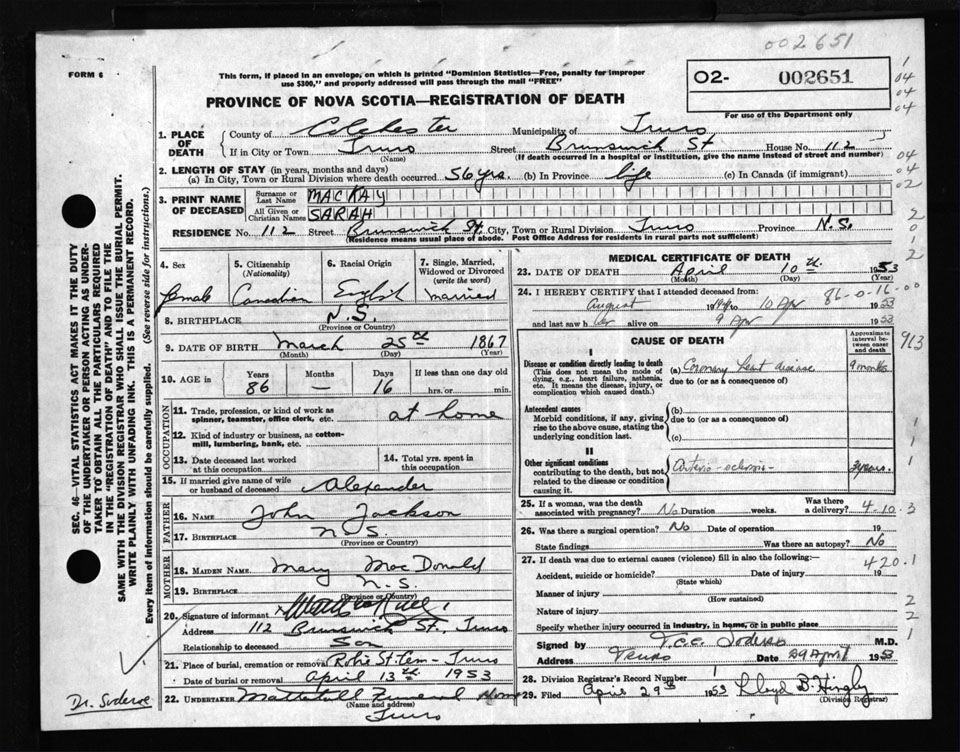 002651
FORM 6
This form, if placed in an envelope, on which is printed "Dominion Statistics—Free, penalty for improper
use $300," and properly addressed will pass through the mail "FREE"
O2- 002651
For use of the Department only
PROVINCE OF NOVA SCOTIA—REGISTRATION OF DEATH
1. PLACE OF DEATH
County of Colchester Municipality of Truro
If in City or Town Truro Street Brunswick St House No. 112
(Name) (If death occurred in a hospital or institution, give the name instead of street and number)
2. LENGTH OF STAY (in years, months and days)
(a) In City, Town or Rural Division where death occurred 56 yrs. (b) In Province life (c) In Canada (if immigrant)
3. PRINT NAME OF DECEASED
Surname or Last Name MACKAY
All Given or Christian Names SARAH
RESIDENCE No. 112 Street Brunswick St. City, Town or Rural Division Truro Province N.S.
(Residence means usual place of abode. Post Office Address for residents in rural parts not sufficient)
4. Sex female
5. Citizenship (Nationality) Canadian
6. Racial Origin English
7. Single, Married, Widowed or Divorced (write the word) Married
8. BIRTHPLACE N.S.
(Province or Country)
9. DATE OF BIRTH March 25th 1867
(Month) (Day) (Year)
10. AGE in Years Months Days If less than one day old
86 — 16 hrs. or min.
OCCUPATION
11. Trade, profession, or kind of work as spinner, teamster, office clerk, etc. at home
12. Kind of industry or business, as cotten-mill, lumbering, bank, etc.
13. Date deceased last worked at this occupation
14. Total yrs. spent in this occupation
15. If married give name of wife or husband of deceased Alexander
FATHER
16. NAME John Jackson
17. BIRTHPLACE N.S.
(Province or Country)
MOTHER
18. MAIDEN NAME Mary MacDonald
19. BIRTHPLACE N.S.
(Province or Country)
20. Signature of informant
Address 112 Brunswick St., Truro
Relationship to deceased Son
21. Place of burial, cremation or removal Robie St. Cem- Truro
Date of burial or removal April 13th 1953
22. UNDERTAKER Mattatall Funeral Home
(Name and address)
Truro
MEDICAL CERTIFICATE OF DEATH
23. DATE OF DEATH April 10th. 1953
(Month) (Day) (Year)
24. I HEREBY CERTIFY that I attended deceased from: 86-0-16-00
August to 10 Apr 1953
and last saw her alive on 9 Apr 1953
CAUSE OF DEATH
Approximate interval between onset and death
913
I
Disease or condition directly leading to death
(This does not mean the mode of dying, e.g., heart failure, asthenia, etc. It means the disease, injury, or complication which caused death.)
(a) Coronary heart disease 9 months
due to (or as a consequence of)
Antecedent causes
Morbid conditions, if any, giving rise to the above cause, stating the underlying condition last.
(b)
due to (or as a consequence of)
(c)
II
Other significant conditions
contributing to the death, but not related to the disease or condition causing it.
Arterio-sclerosis years.
25. If a woman, was the death associated with pregnancy? No Duration weeks. Was there a delivery? 4-10.3
26. Was there a surgical operation? No Date of operation 19
State findings Was there an autopsy? No
27. If death was due to external causes (violence) fill in also the following:— 420.1
Accident, suicide or homicide? Date of injury 19
(State which)
Manner of injury
(How sustained)
Nature of injury
Specify whether injury occurred in industry, in home, or in public place
Signed by M.D.
Address Truro Date 29 April 1953
28. Division Registrar's Record Number
29. Filed April 29th 1953 Lloyd B. Hingly
(Division Registrar)
SEC. 46—VITAL STATISTICS ACT MAKES IT THE DUTY
OF THE UNDERTAKER OR PERSON ACTING AS UNDER-
TAKER TO OBTAIN ALL THE PARTICULARS REQUIRED
IN THE "REGISTRATION OF DEATH" AND TO FILE THE
SAME WITH THE DIVISION REGISTRAR WHO SHALL ISSUE THE BURIAL PERMIT.
WRITE PLAINLY WITH UNFADING INK. THIS IS A PERMANENT RECORD.
Every item of information should be carefully supplied. (See reverse side for instructions.)